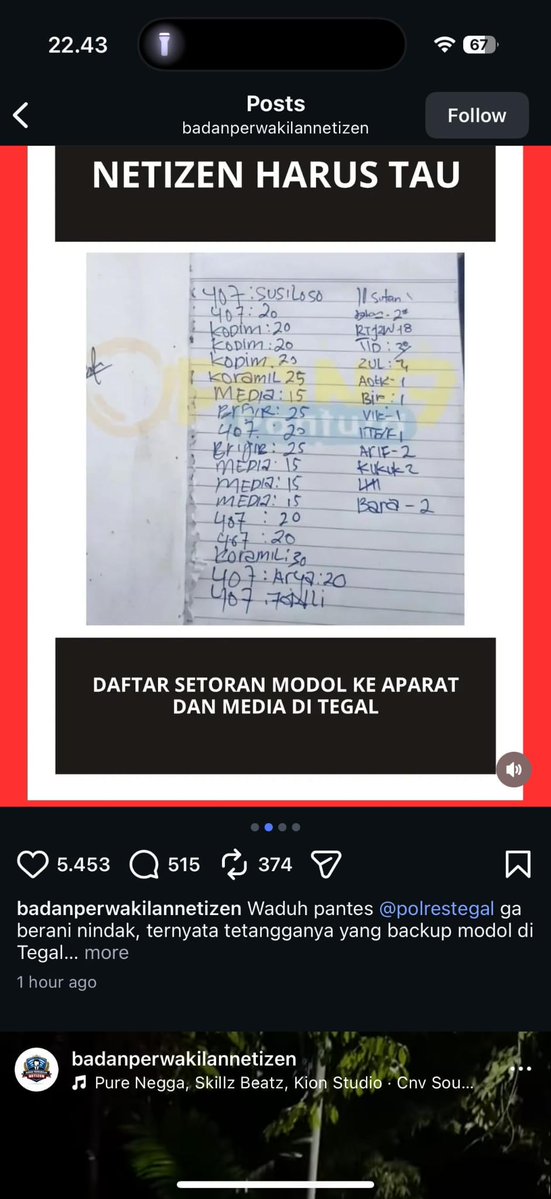 22.43
67
Posts
badanperwakilannetizen
Follow
NETIZEN HARUS TAU
407 : SUSILOSO
407 : 20
KODIM : 20
KODIM : 20
KODIM . 20
KORAMIL 25
MEDIA : 15
BRIGIR : 25
407. 20
BRIGIR : 25
MEDIA : 15
MEDIA : 15
MEDIA : 15
407 : 20
407 : 20
KORAMIL : 30
407 : Arya : 20
407
Sutan
ZUL :
Bir - 1
VIK - 1
ARIF - 2
KUKUK 2
Bara - 2
DAFTAR SETORAN MODOL KE APARAT
DAN MEDIA DI TEGAL
5.453
515
374
badanperwakilannetizen Waduh pantes @polrestegal ga
berani nindak, ternyata tetangganya yang backup modol di
Tegal... more
1 hour ago
badanperwakilannetizen
Pure Negga, Skillz Beatz, Kion Studio · Cnv Sou...